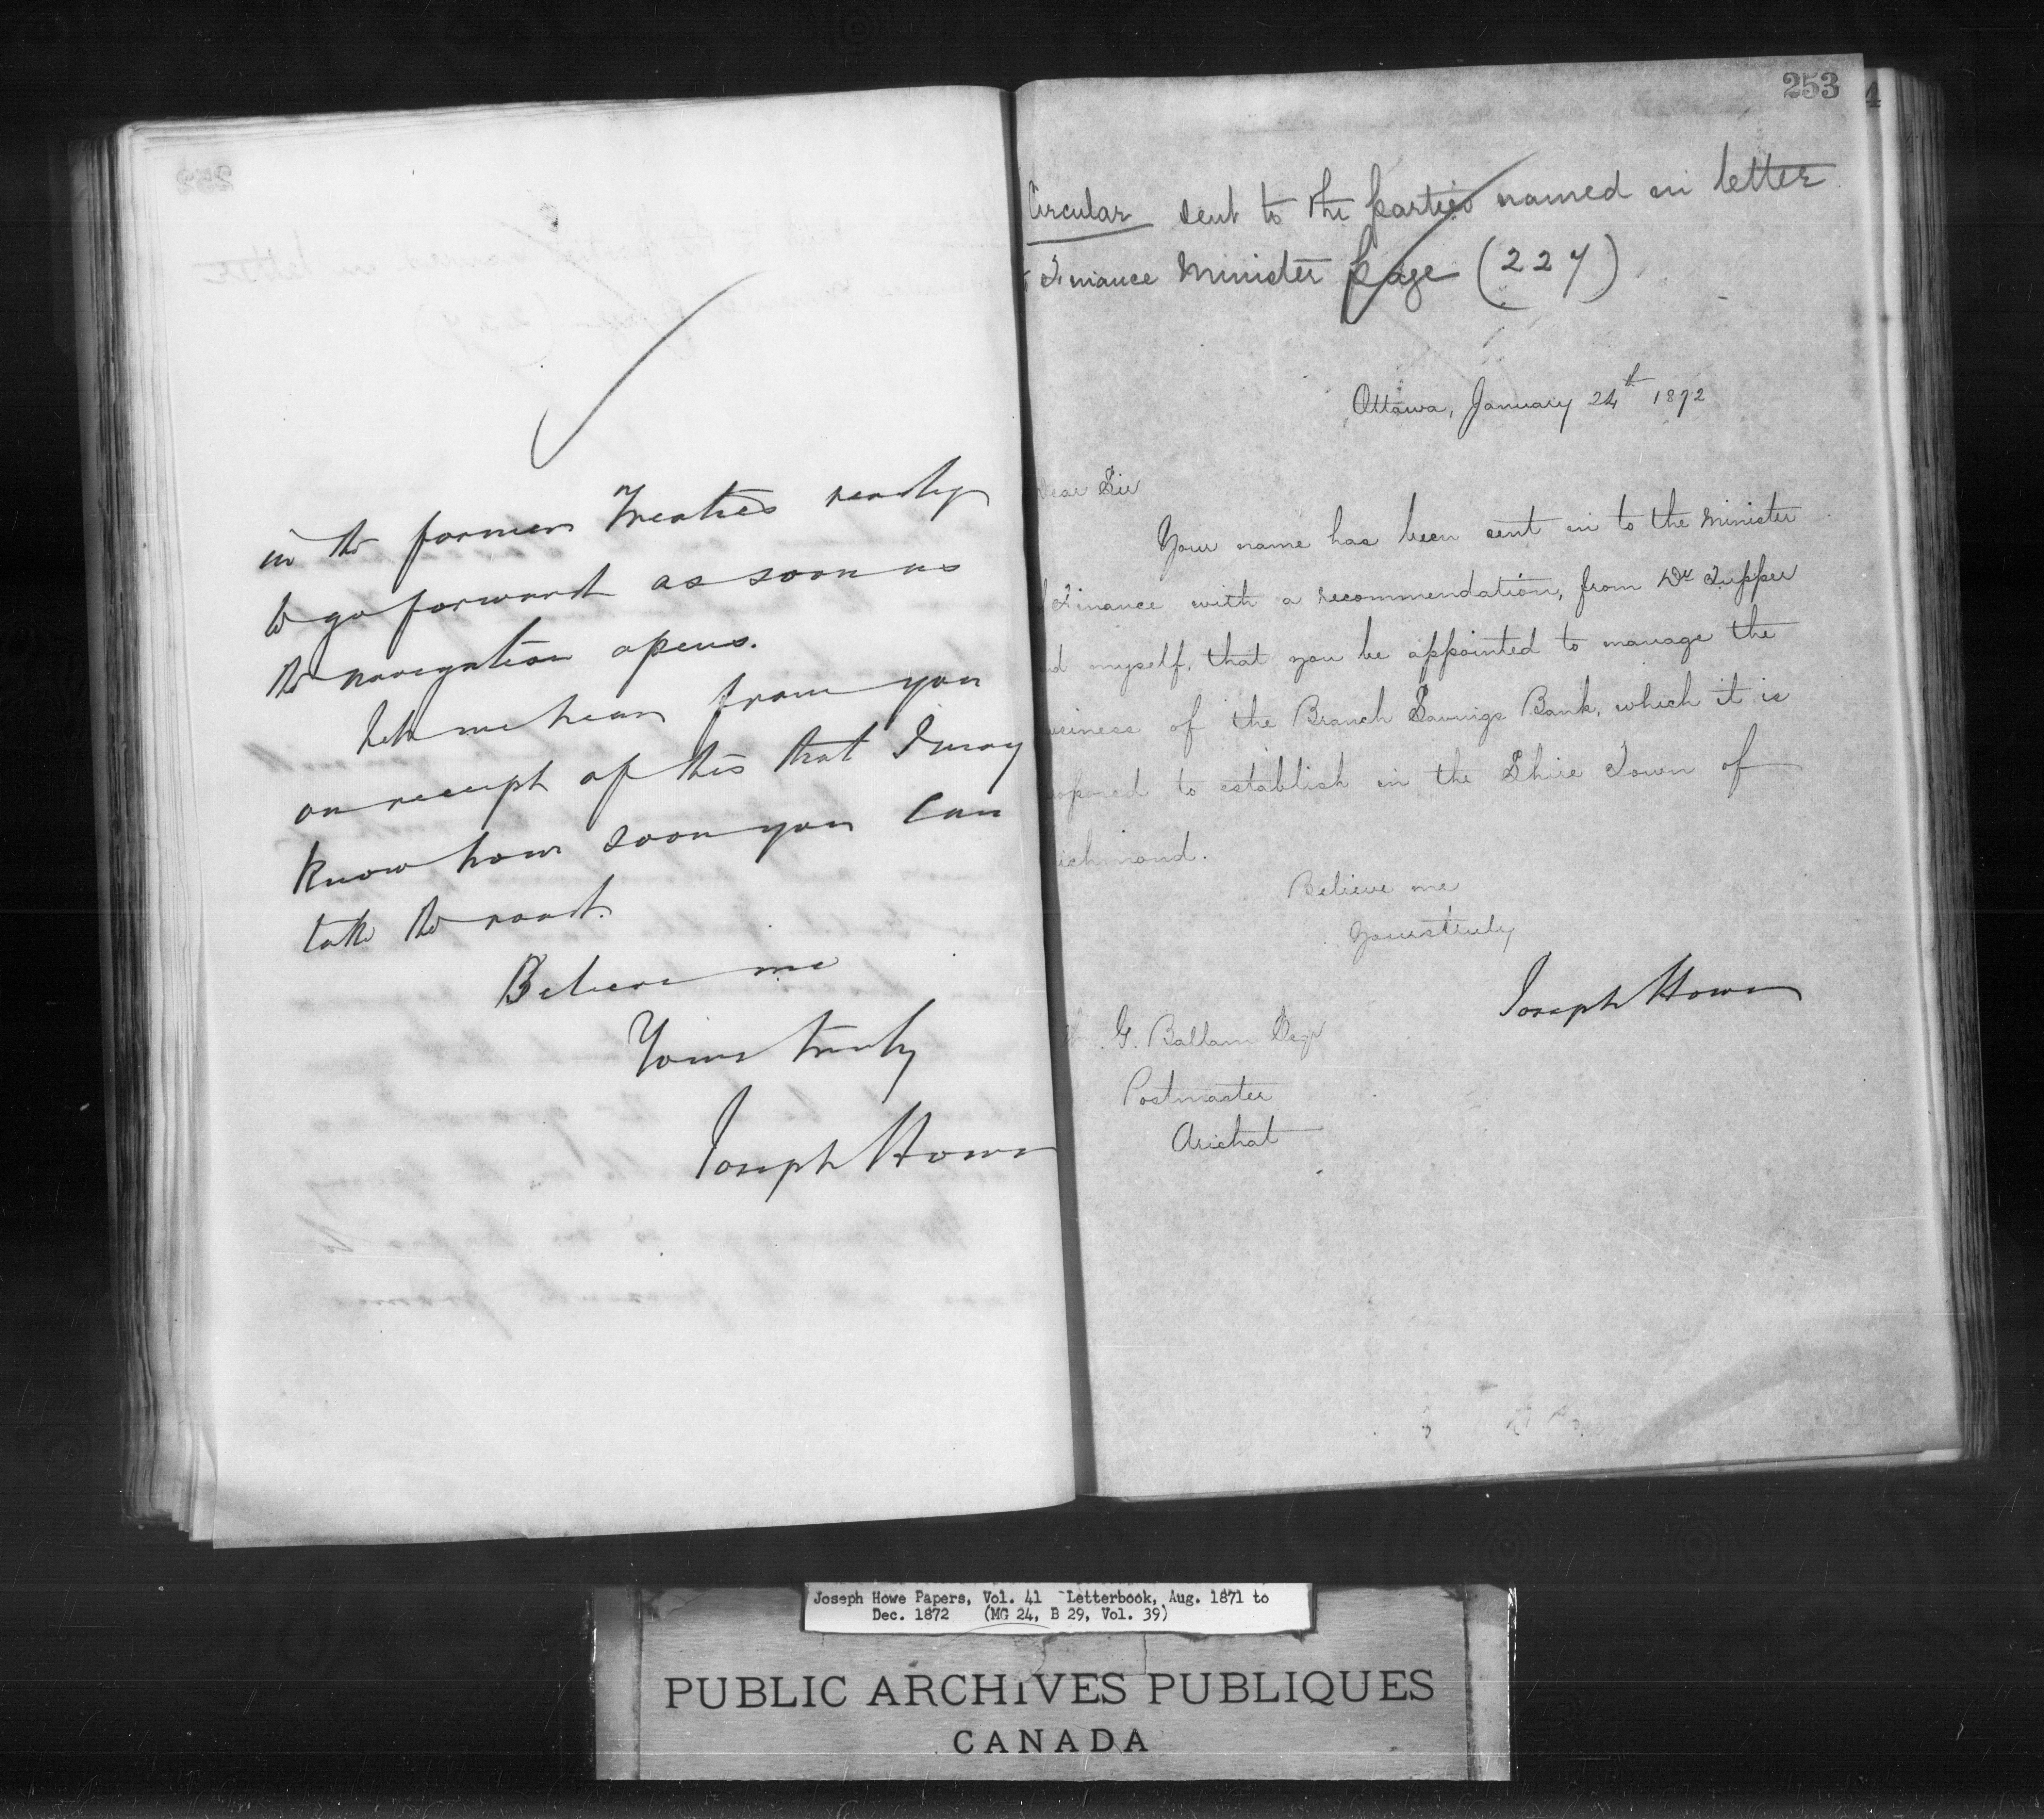 in the former Treaties ready
to go forward as soon as
the navigation opens.
Let me hear from you
on receipt of this that I may
know how soon you can
take the road.
Believe me
Yours truly
Joseph Howe
253
Circular sent to the parties named in letter
Finance Minister page (227)
Ottawa, January 24th 1872
Dear Sir
Your name has been sent in to the Minister
of Finance with a recommendation, from Dr Tupper
and myself, that you be appointed to manage the
business of the Branch Savings Bank, which it is
proposed to establish in the Shire Town of
Richmond.
Believe me
Yours truly
Joseph Howe
G. Ballam Esqr
Postmaster
Arichat
Joseph Howe Papers, Vol. 41 Letterbook, Aug. 1871 to
Dec. 1872 (MG 24, B 29, Vol. 39)
PUBLIC ARCHIVES PUBLIQUES
CANADA